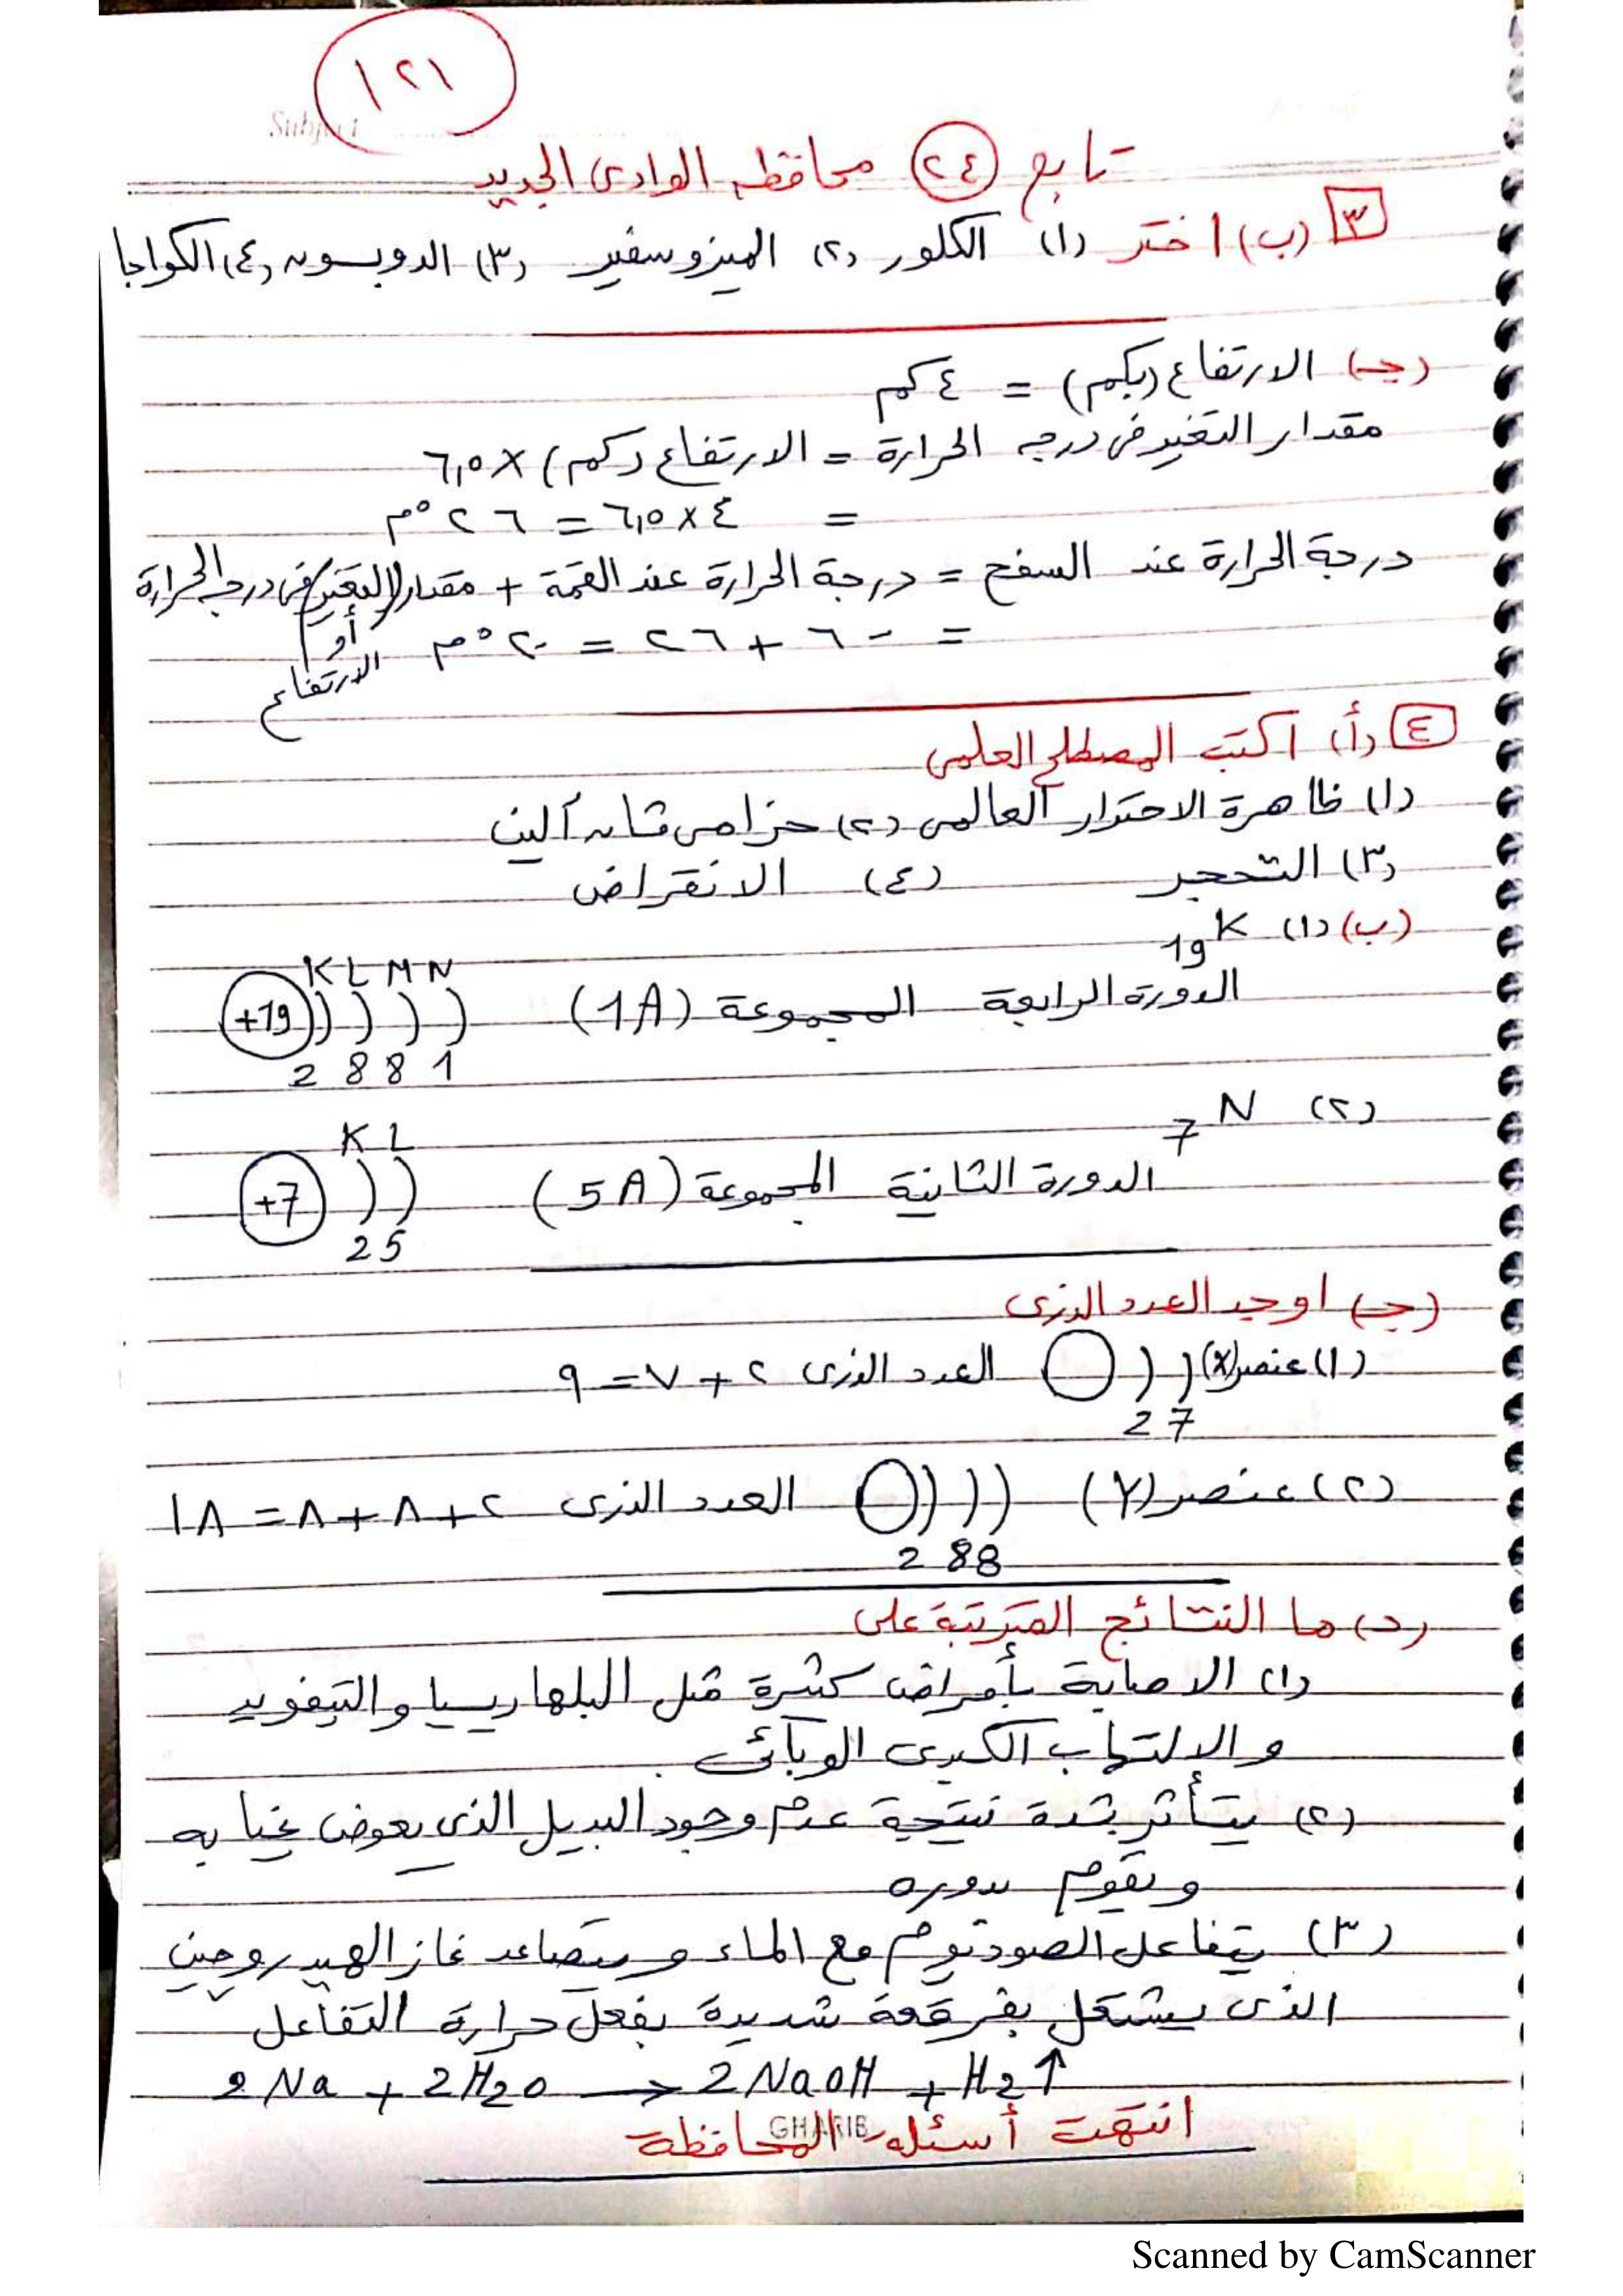 ١٢١
Subject
تابع (٢٤) محافظه الوادى الجديد
٣ (ب) اختر (١) الكلور (٢) الميزوسفير (٣) الدوبسون (٤) الكواجا
(جـ) الارتفاع (بكم) = ٤ كم
مقدار التغير فى درجه الحرارة = الارتفاع (كم) × ٦,٥
= ٤ × ٦,٥ = ٢٦ °م
درجة الحرارة عند السفح = درجة الحرارة عند القمة + مقدار (التغير) فى درجه الحرارة
= -٦ + ٢٦ = ٢٠ °م أو
الارتفاع
٤ (أ) اكتب المصطلح العلمى
(١) ظاهرة الاحترار العالمى (٢) حزامى ڤان آلين
(٣) التحجر (٤) الانقراض
(ب) (١) 19K
K L M N
الدورة الرابعة المجموعة (1A) +19
2 8 8 1
(٢) 7N
K L
الدورة الثانية المجموعة (5A) +7
2 5
(جـ) اوجد العدد الذرى
(١) عنصر (X) العدد الذرى ٢ + ٧ = ٩
2 7
(٢) عنصر (Y) العدد الذرى ٢ + ٨ + ٨ = ١٨
2 8 8
(د) ما النتائج المترتبة على
(١) الاصابة بأمراض كثيرة مثل البلهاريسيا والتيفويد
والالتهاب الكبدى الوبائى
(٢) يتأثر بشدة نتيجة عدم وجود البديل الذى يعوض غيابه
ويقوم بدوره
(٣) يتفاعل الصوديوم مع الماء ويتصاعد غاز الهيدروجين
الذى يشتعل بفرقعة شديدة بفعل حرارة التفاعل
2Na + 2H2O → 2NaOH + H2↑
انتهت أسئله المحافظة
GHARIB
Scanned by CamScanner